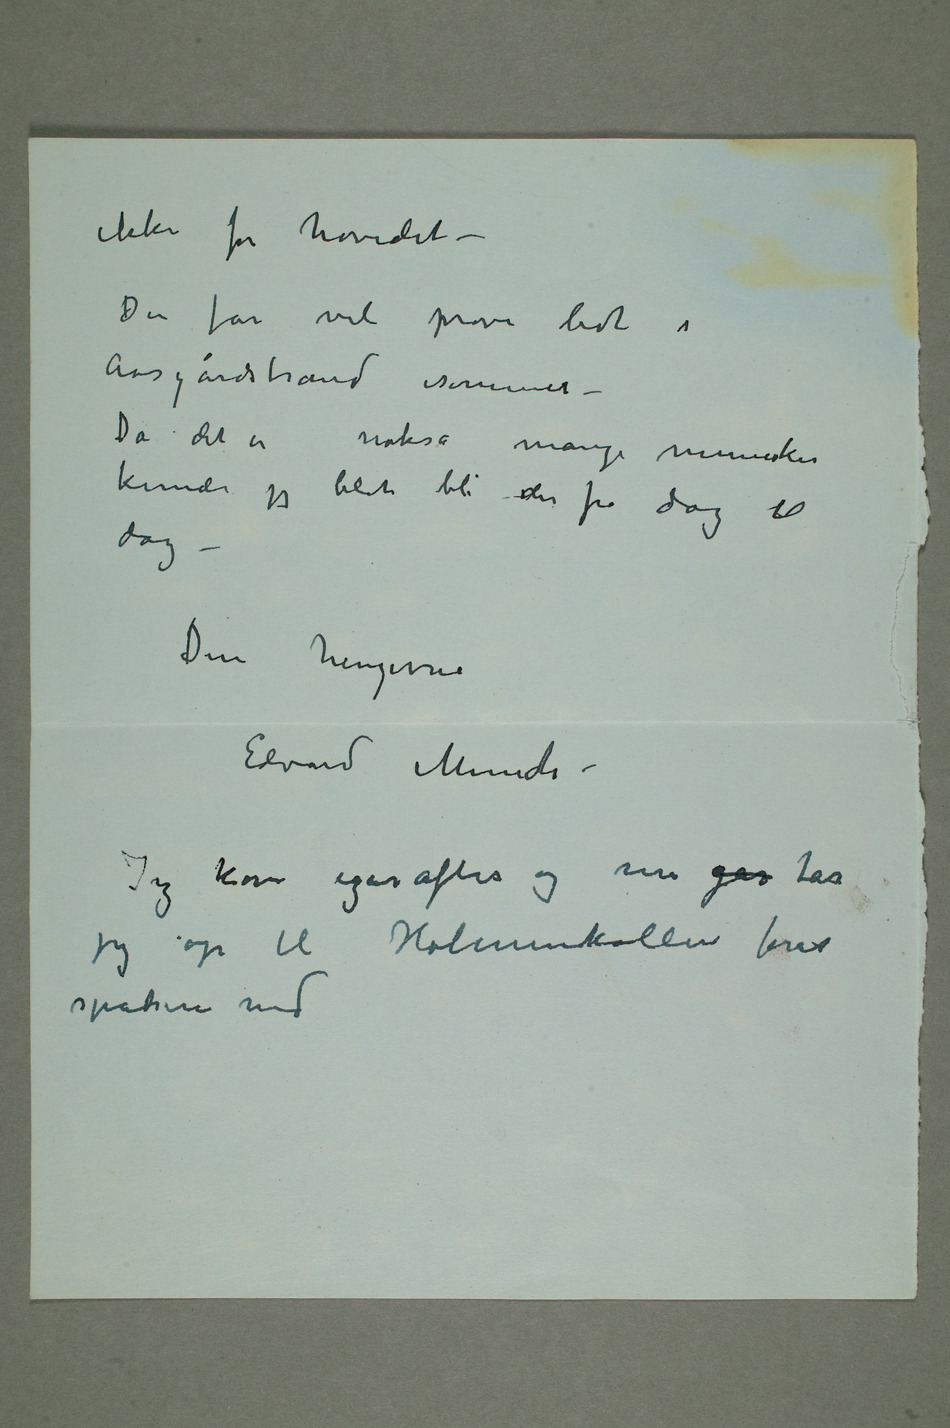 ikke for hovedet –
Du får vel prøve lidt i
Aasgårdstrand isommer –
Da det er nokså mange mennesker
kunde jeg blot bli der fra dag til
dag –
Din hengivne
Edvard Munch –
Jeg kom igåraftes og nu går tar
jeg op til Holmenkollen forat
spadsere ned